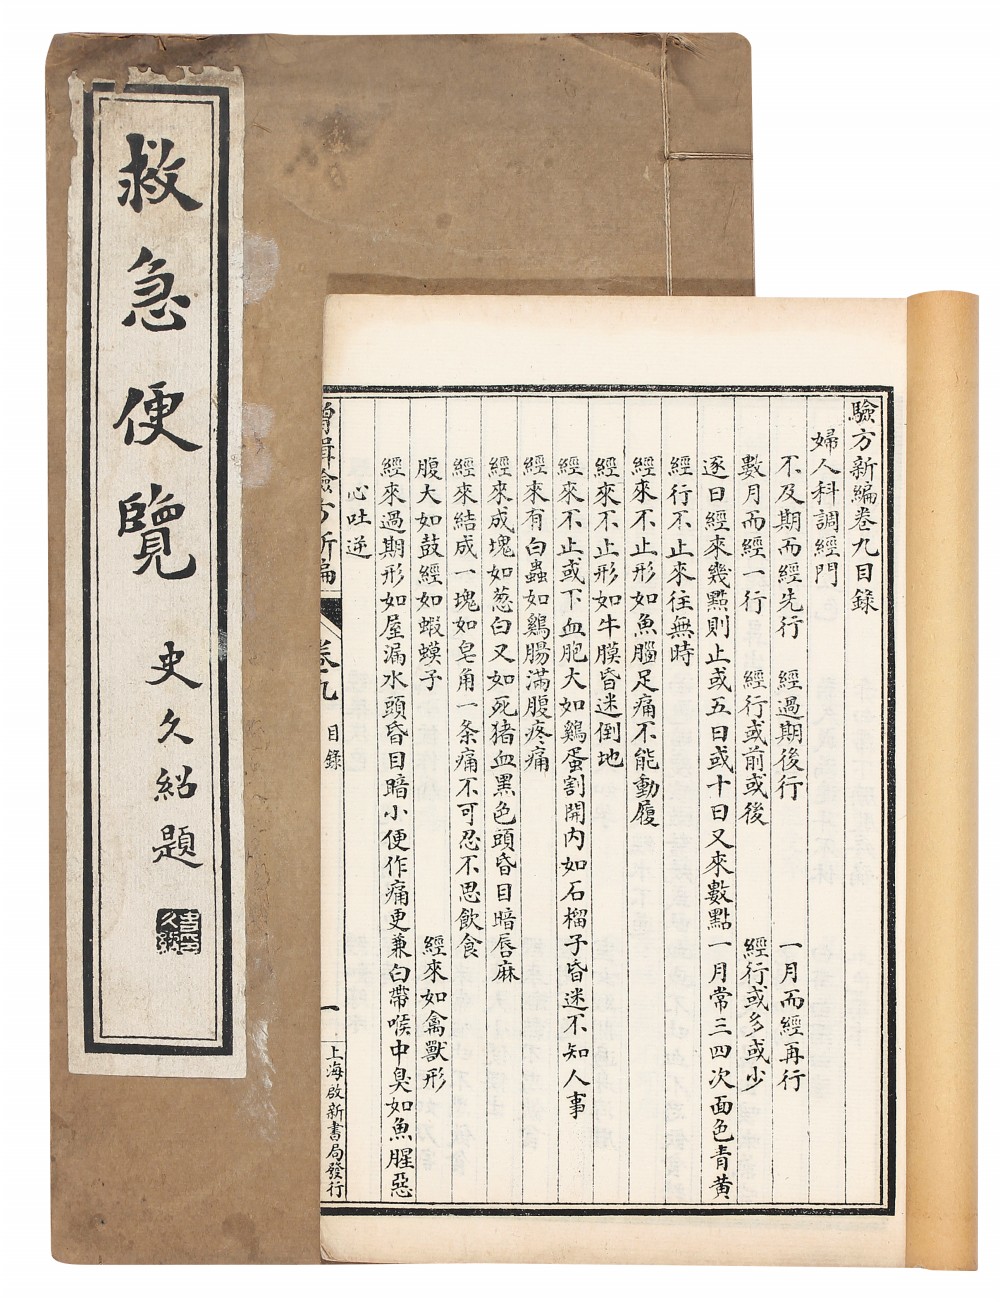 救急便覽
史久紹題
驗方新編卷九目錄
婦人科調經門
不及期而經先行　經過期後行　一月而經再行
數月而經一行　經行或前或後　經行或多或少
逐日經來幾點則止或五日或十日又來數點一月常三四次面色青黃
經行不止來往無時
經來不止形如魚腦足痛不能動履
經來不止形如牛膜昏迷倒地
經來不止或下血肥大如鷄蛋割開內如石榴子昏迷不知人事
經來有白蟲如鷄腸滿腹疼痛
經來成塊如葱白又如死猪血黑色頭昏目暗唇麻
經來結成一塊如皂角一条痛不可忍不思飲食
腹大如鼓經如蝦蟆子　經來如禽獸形
經來過期形如屋漏水頭昏目暗小便作痛更兼白帶喉中臭如魚腥惡
心吐逆
增輯驗方新編　卷九　目錄　一　上海啟新書局發行